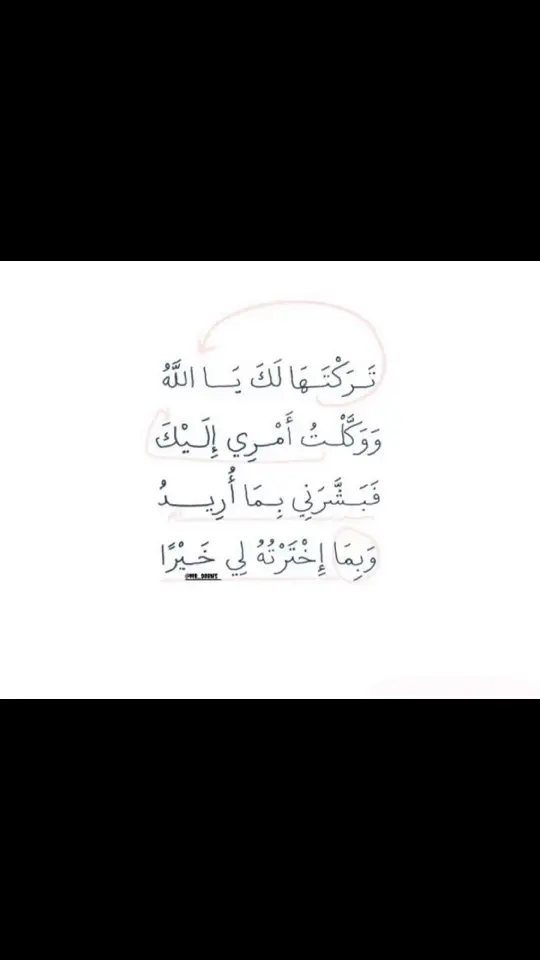 تَـرَكْتَـهَا لَكَ يَـا اللَّهُ
وَوَكَّلْـتُ أَمْـرِي إِلَـيْكَ
فَبَـشَّرَنِي بِـمَا أُرِيـدُ
وَبِمَا إِخْتَرْتُهُ لِي خَـيْرًا